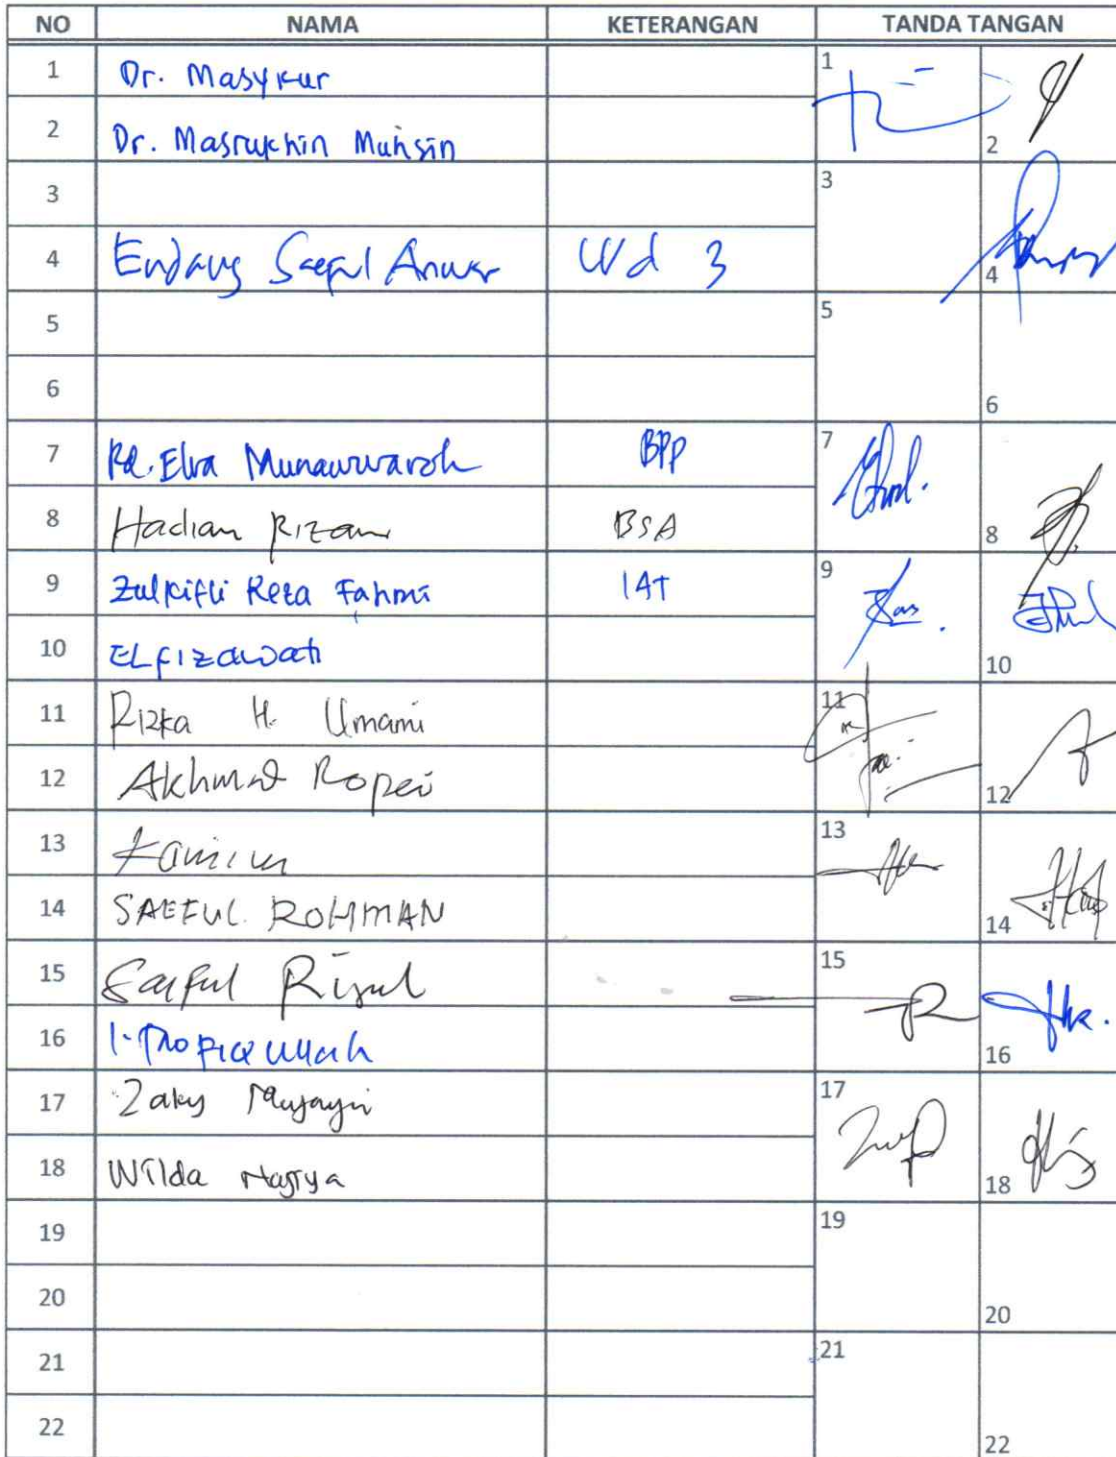 NO NAMA KETERANGAN TANDA TANGAN
1 Dr. Masykur 1
2 Dr. Masrukhin Muhsin 2
3 3
4 Endang Saeful Anwar Wd 3 4
5 5
6 6
7 Rd. Elva Munawwaroh BPP 7
8 Hadian Rizani BSA 8
9 Zulkifli Reza Fahmi IAT 9
10 ELFIZAWati 10
11 Rizka H. Umami 11
12 Akhmad Ropei 12
13 13
14 SAEFUL ROHMAN 14
15 Saiful Rizal 15
16 16
17 Zaky 17
18 Wilda Nagiya 18
19 19
20 20
21 21
22 22